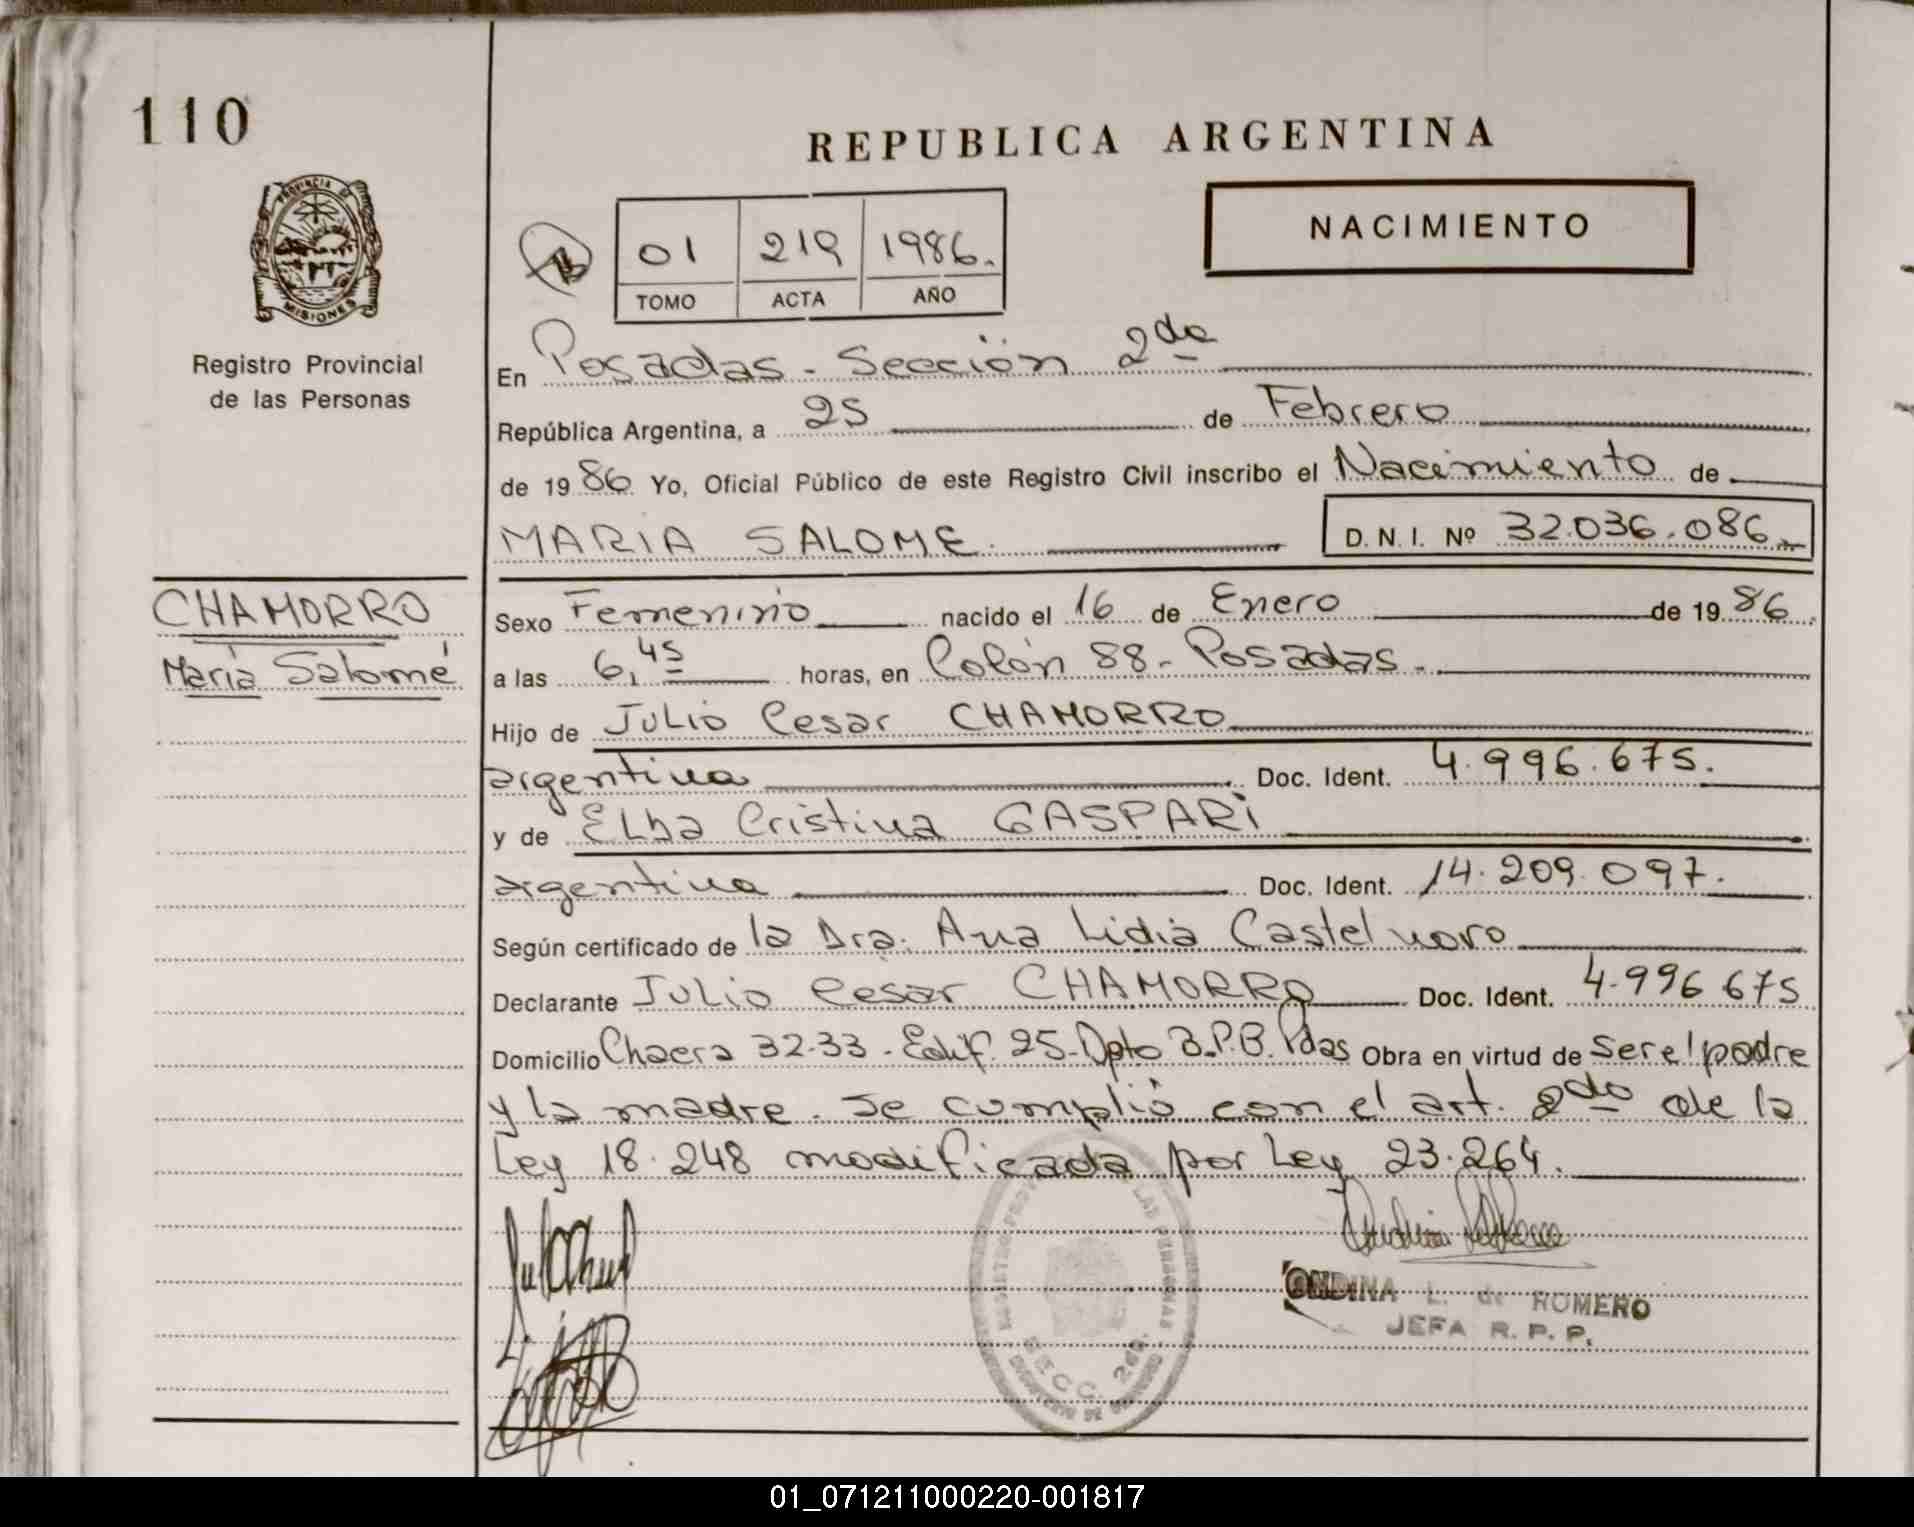 110
REPUBLICA ARGENTINA
PROVINCIA DE MISIONES
Registro Provincial
de las Personas
01 219 1986.
TOMO ACTA AÑO
NACIMIENTO
En Posadas - Sección 2da
República Argentina, a 25 de Febrero
de 1986 Yo, Oficial Público de este Registro Civil inscribo el Nacimiento de
MARIA SALOME. D.N.I. Nº 32.036.086
CHAMORRO
María Salomé
Sexo Femenino nacido el 16 de Enero de 1986
a las 6,45 horas, en Colón 88 - Posadas -
Hijo de Julio Cesar CHAMORRO
argentina Doc. Ident. 4.996.675.
y de Elba Cristina GASPARI
argentina Doc. Ident. 14.209.097.
Según certificado de la Dra. Ana Lidia Castelnovo
Declarante Julio Cesar CHAMORRO Doc. Ident. 4.996 675
Domicilio Chacra 32-33 - Edif. 25 - Dpto B. P.B. Pdas Obra en virtud de ser el padre
y la madre. Se cumplió con el art. 2do de la
Ley 18.248 modificada por Ley 23.264.
ONDINA L. de ROMERO
JEFA R. P. P.
SECC. 2da.
01_071211000220-001817